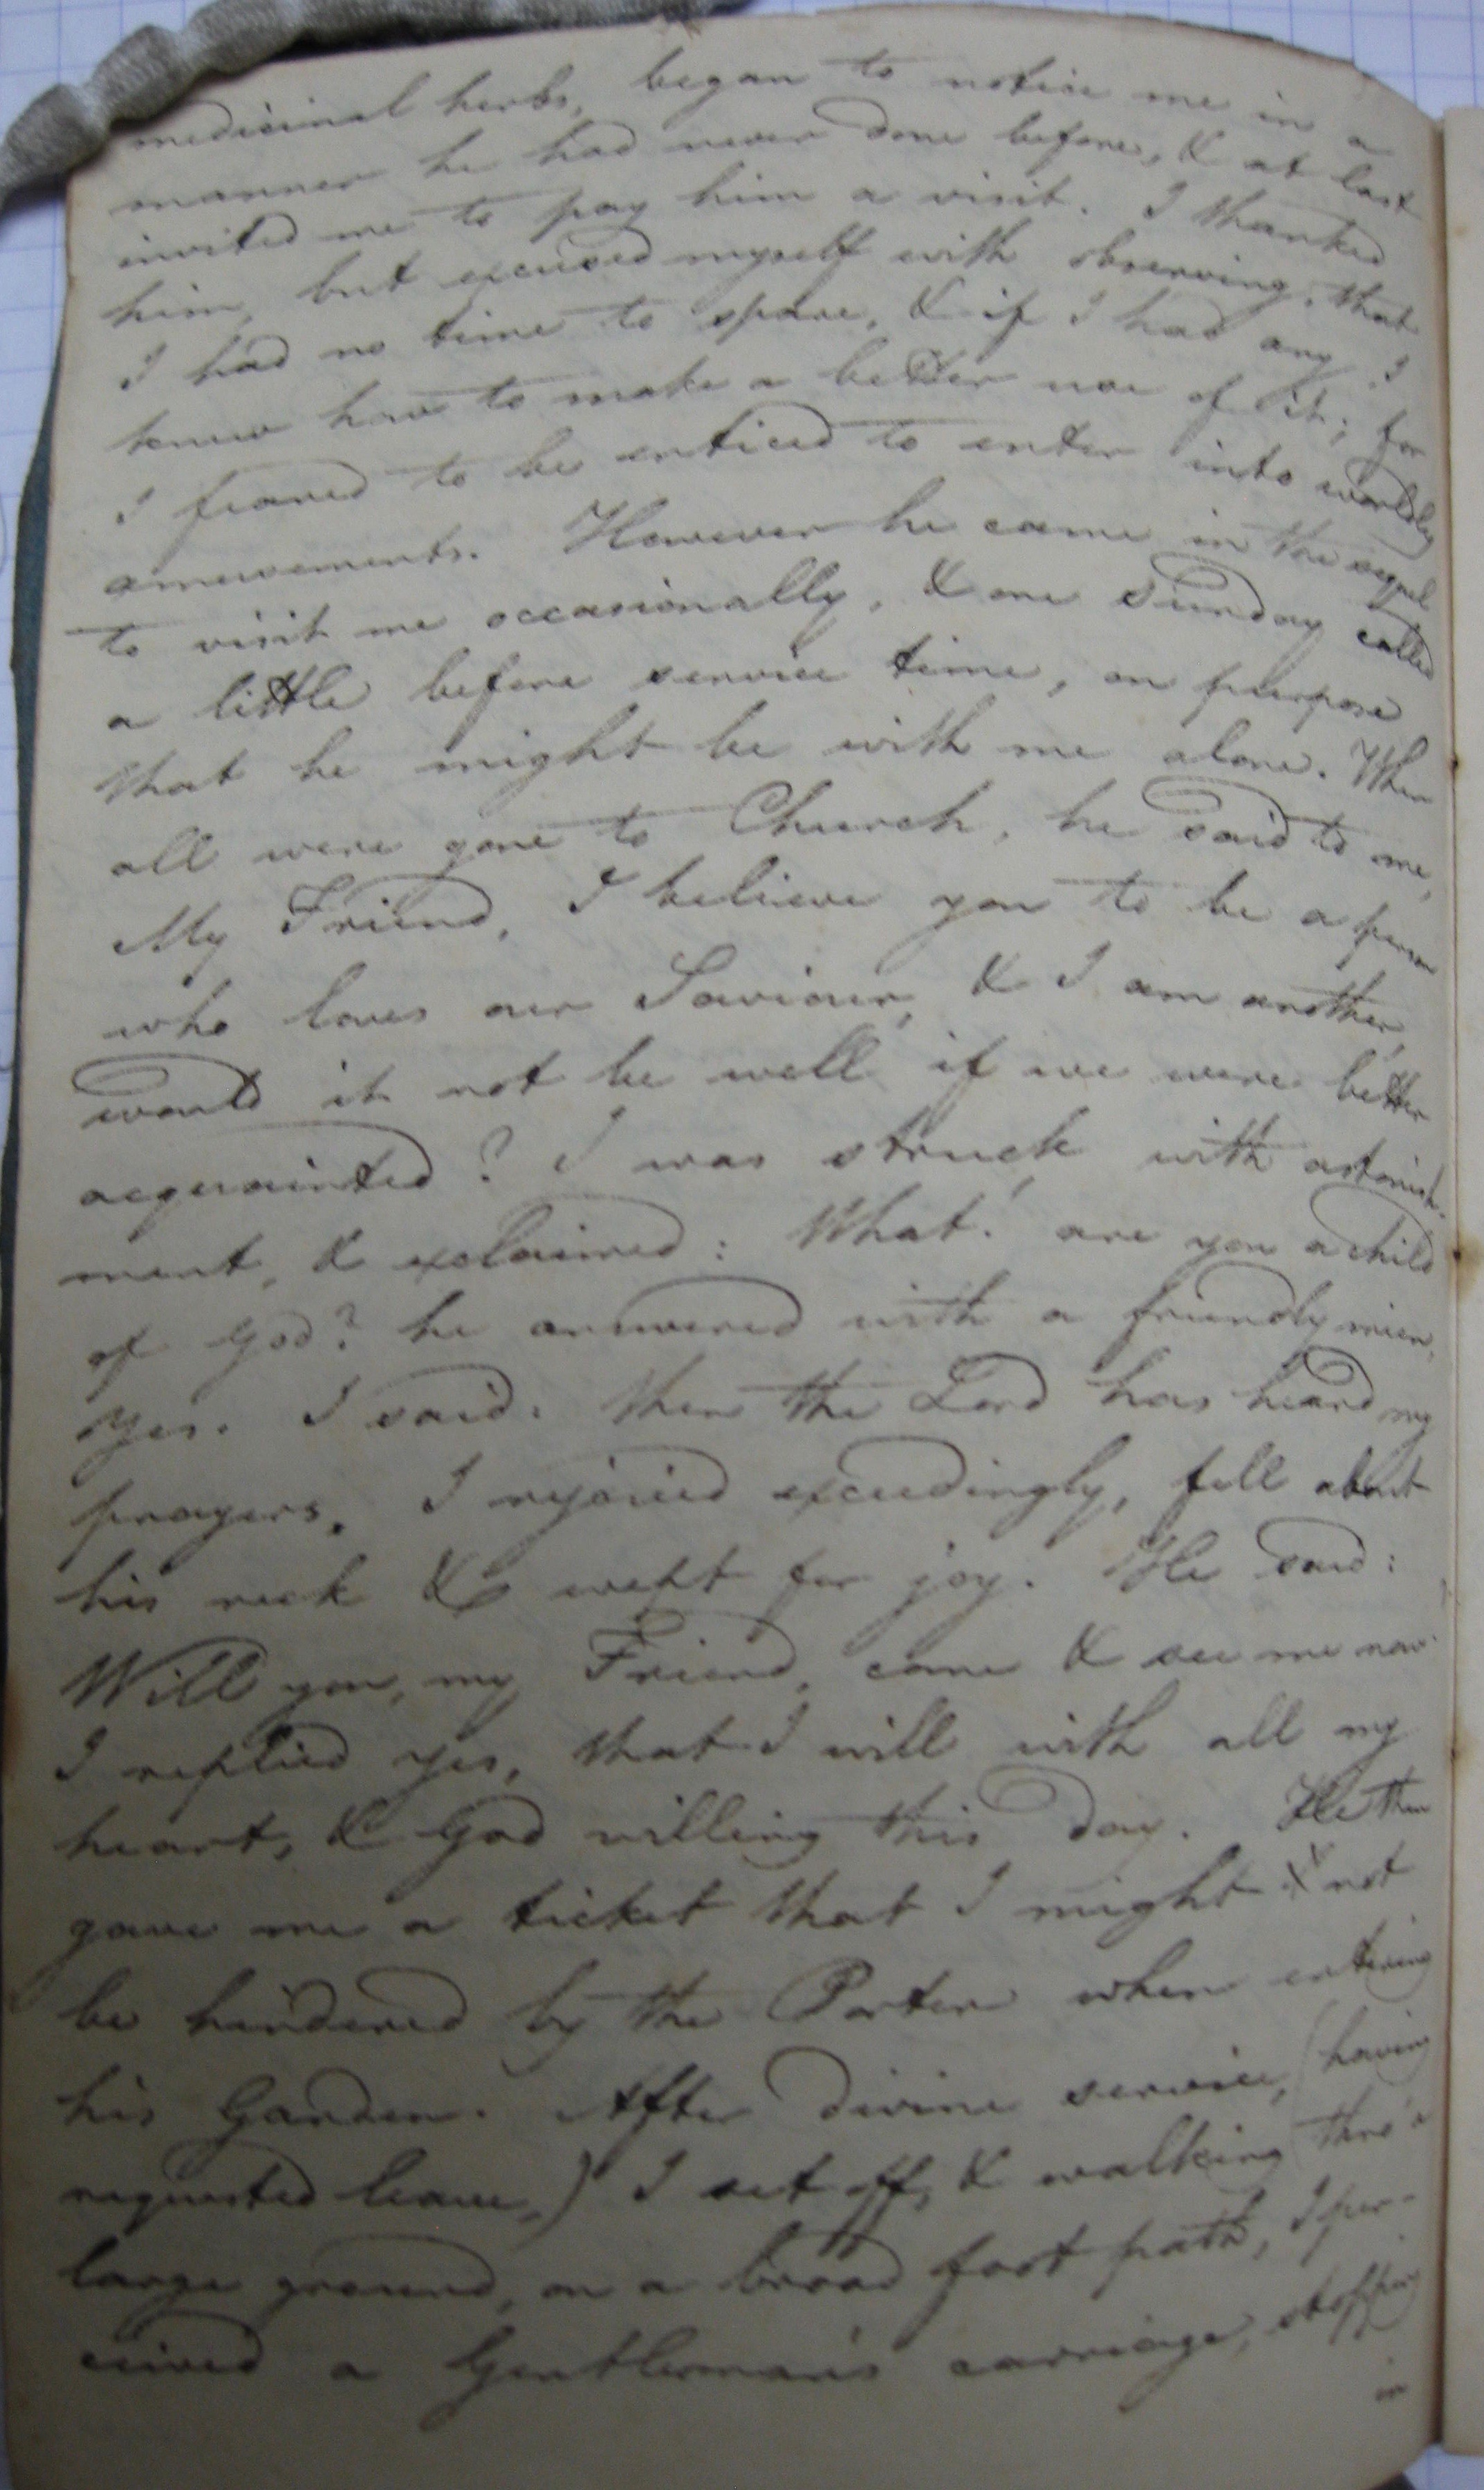 medicinal herbs, began to notice me in a
manner he had never done before, & at last
invited me to pay him a visit. I thanked
him, but excused myself with observing, that
I had no time to spare, & if I had any I
knew how to make a better use of it; for
I feared to be enticed to enter into worldly
amusements. However he came in the sequel
to visit me occasionally, & one Sunday called
a little before service time, on purpose
that he might be with me alone. When
all were gone to Church, he said to me,
My Friend, I believe you to be a person
who loves our Saviour, & I am another,
would it not be well if we were better
acquainted? I was struck with astonish-
ment, & exclaimed: What! are you a child
of God? he answered with a friendly mien,
Yes. I said: then the Lord has heard my
prayers. I rejoiced exceedingly, fell about
his neck & wept for joy. He said:
Will you, my Friend, come & see me now
I replied yes, that I will with all my
heart, & God willing this day. He then
gave me a ticket that I might not
be hindered by the Porter when entering
his Garden. After divine service, (having
requested leave,) I set off, & walking thro' a
large ground, on a broad foot path, I per-
ceived a Gentleman's carriage, stopping
in